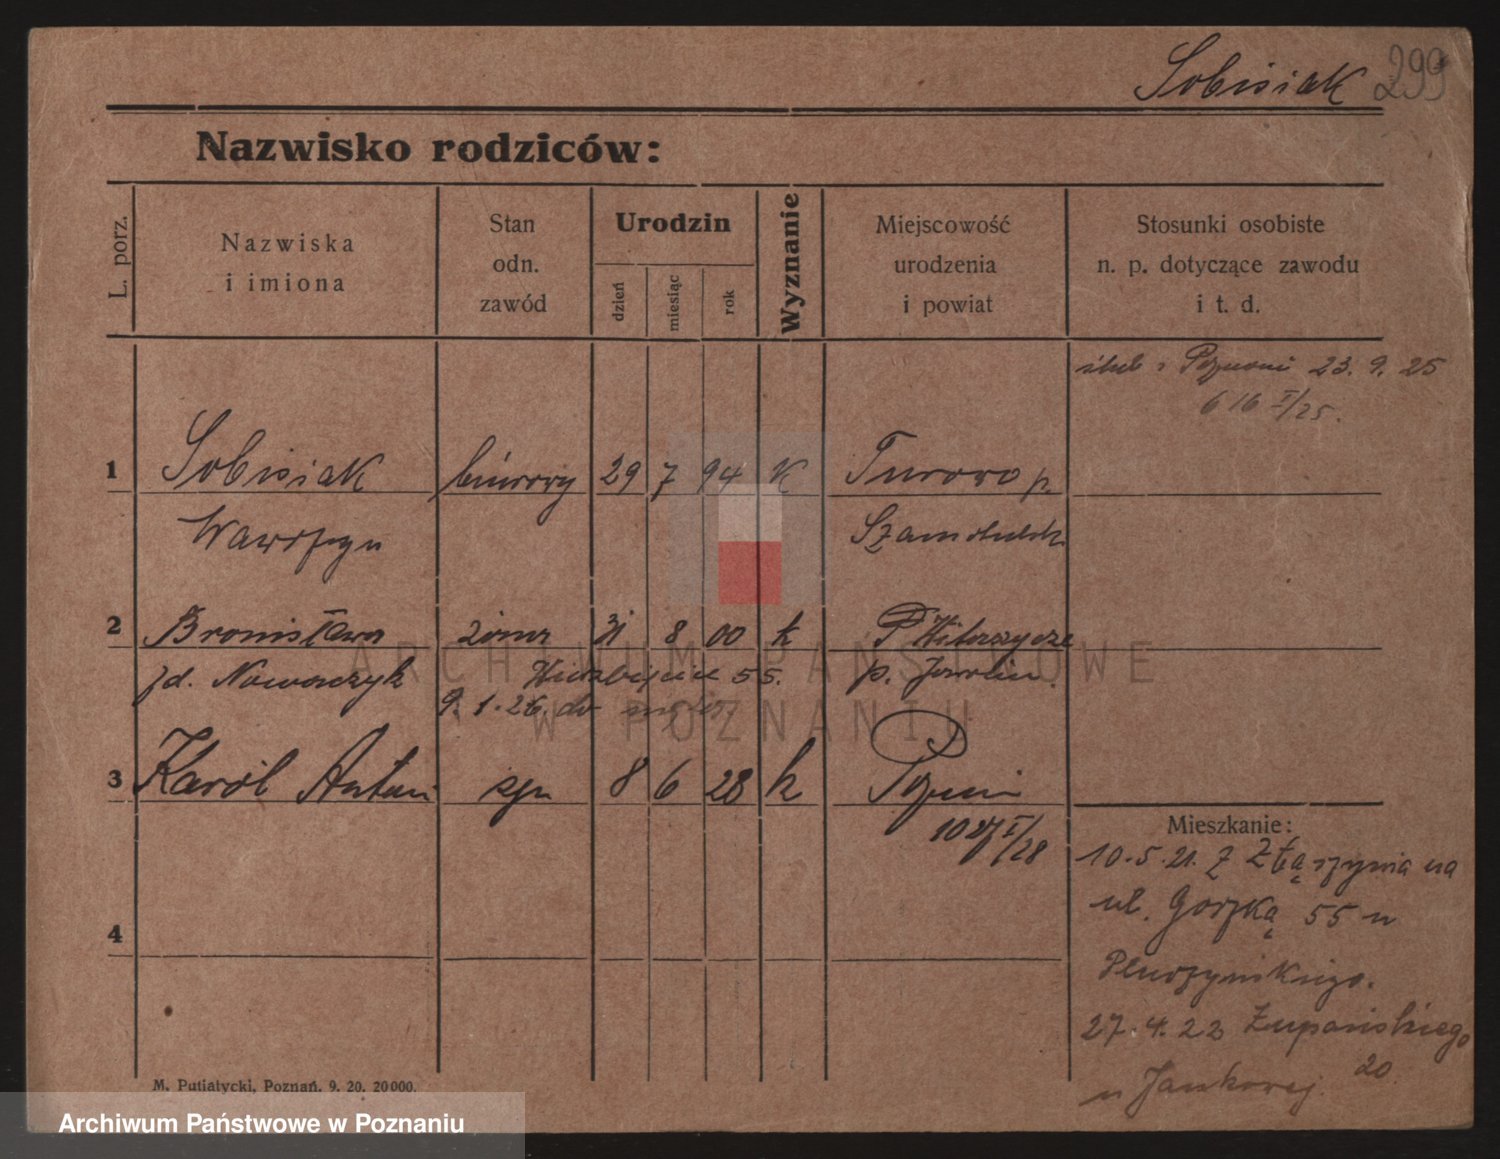 Sobisiak 299
Nazwisko rodziców:
L. porz.
Nazwiska
i imiona
Stan
odn.
zawód
Urodzin
dzień
miesiąc
rok
Wyznanie
Miejscowość
urodzenia
i powiat
Stosunki osobiste
n. p. dotyczące zawodu
i t. d.
ślub Poznani 23. 9. 25
616 I/25.
1 Sobisiak biurowy 29 7 94 K Turowo p.
Wawrzyn Szamotulsk
2 Bronisława żona 31 8 00 k Witaszyce
zd. Nowaczyk 55. p. Jarocin
9. 1. 26. do
3 Karól Antoni syn 8 6 28 k Poznań
1027 I/28
4
Mieszkanie:
10. 5. 21. Z Zbąszynia na
ul. Gorzką 55 u
27. 4. 22 Żupańskiego
20
u Jankowej.
M. Putiatycki, Poznań. 9. 20. 20000.
ARCHIWUM PAŃSTWOWE
W POZNANIU
Archiwum Państwowe w Poznaniu